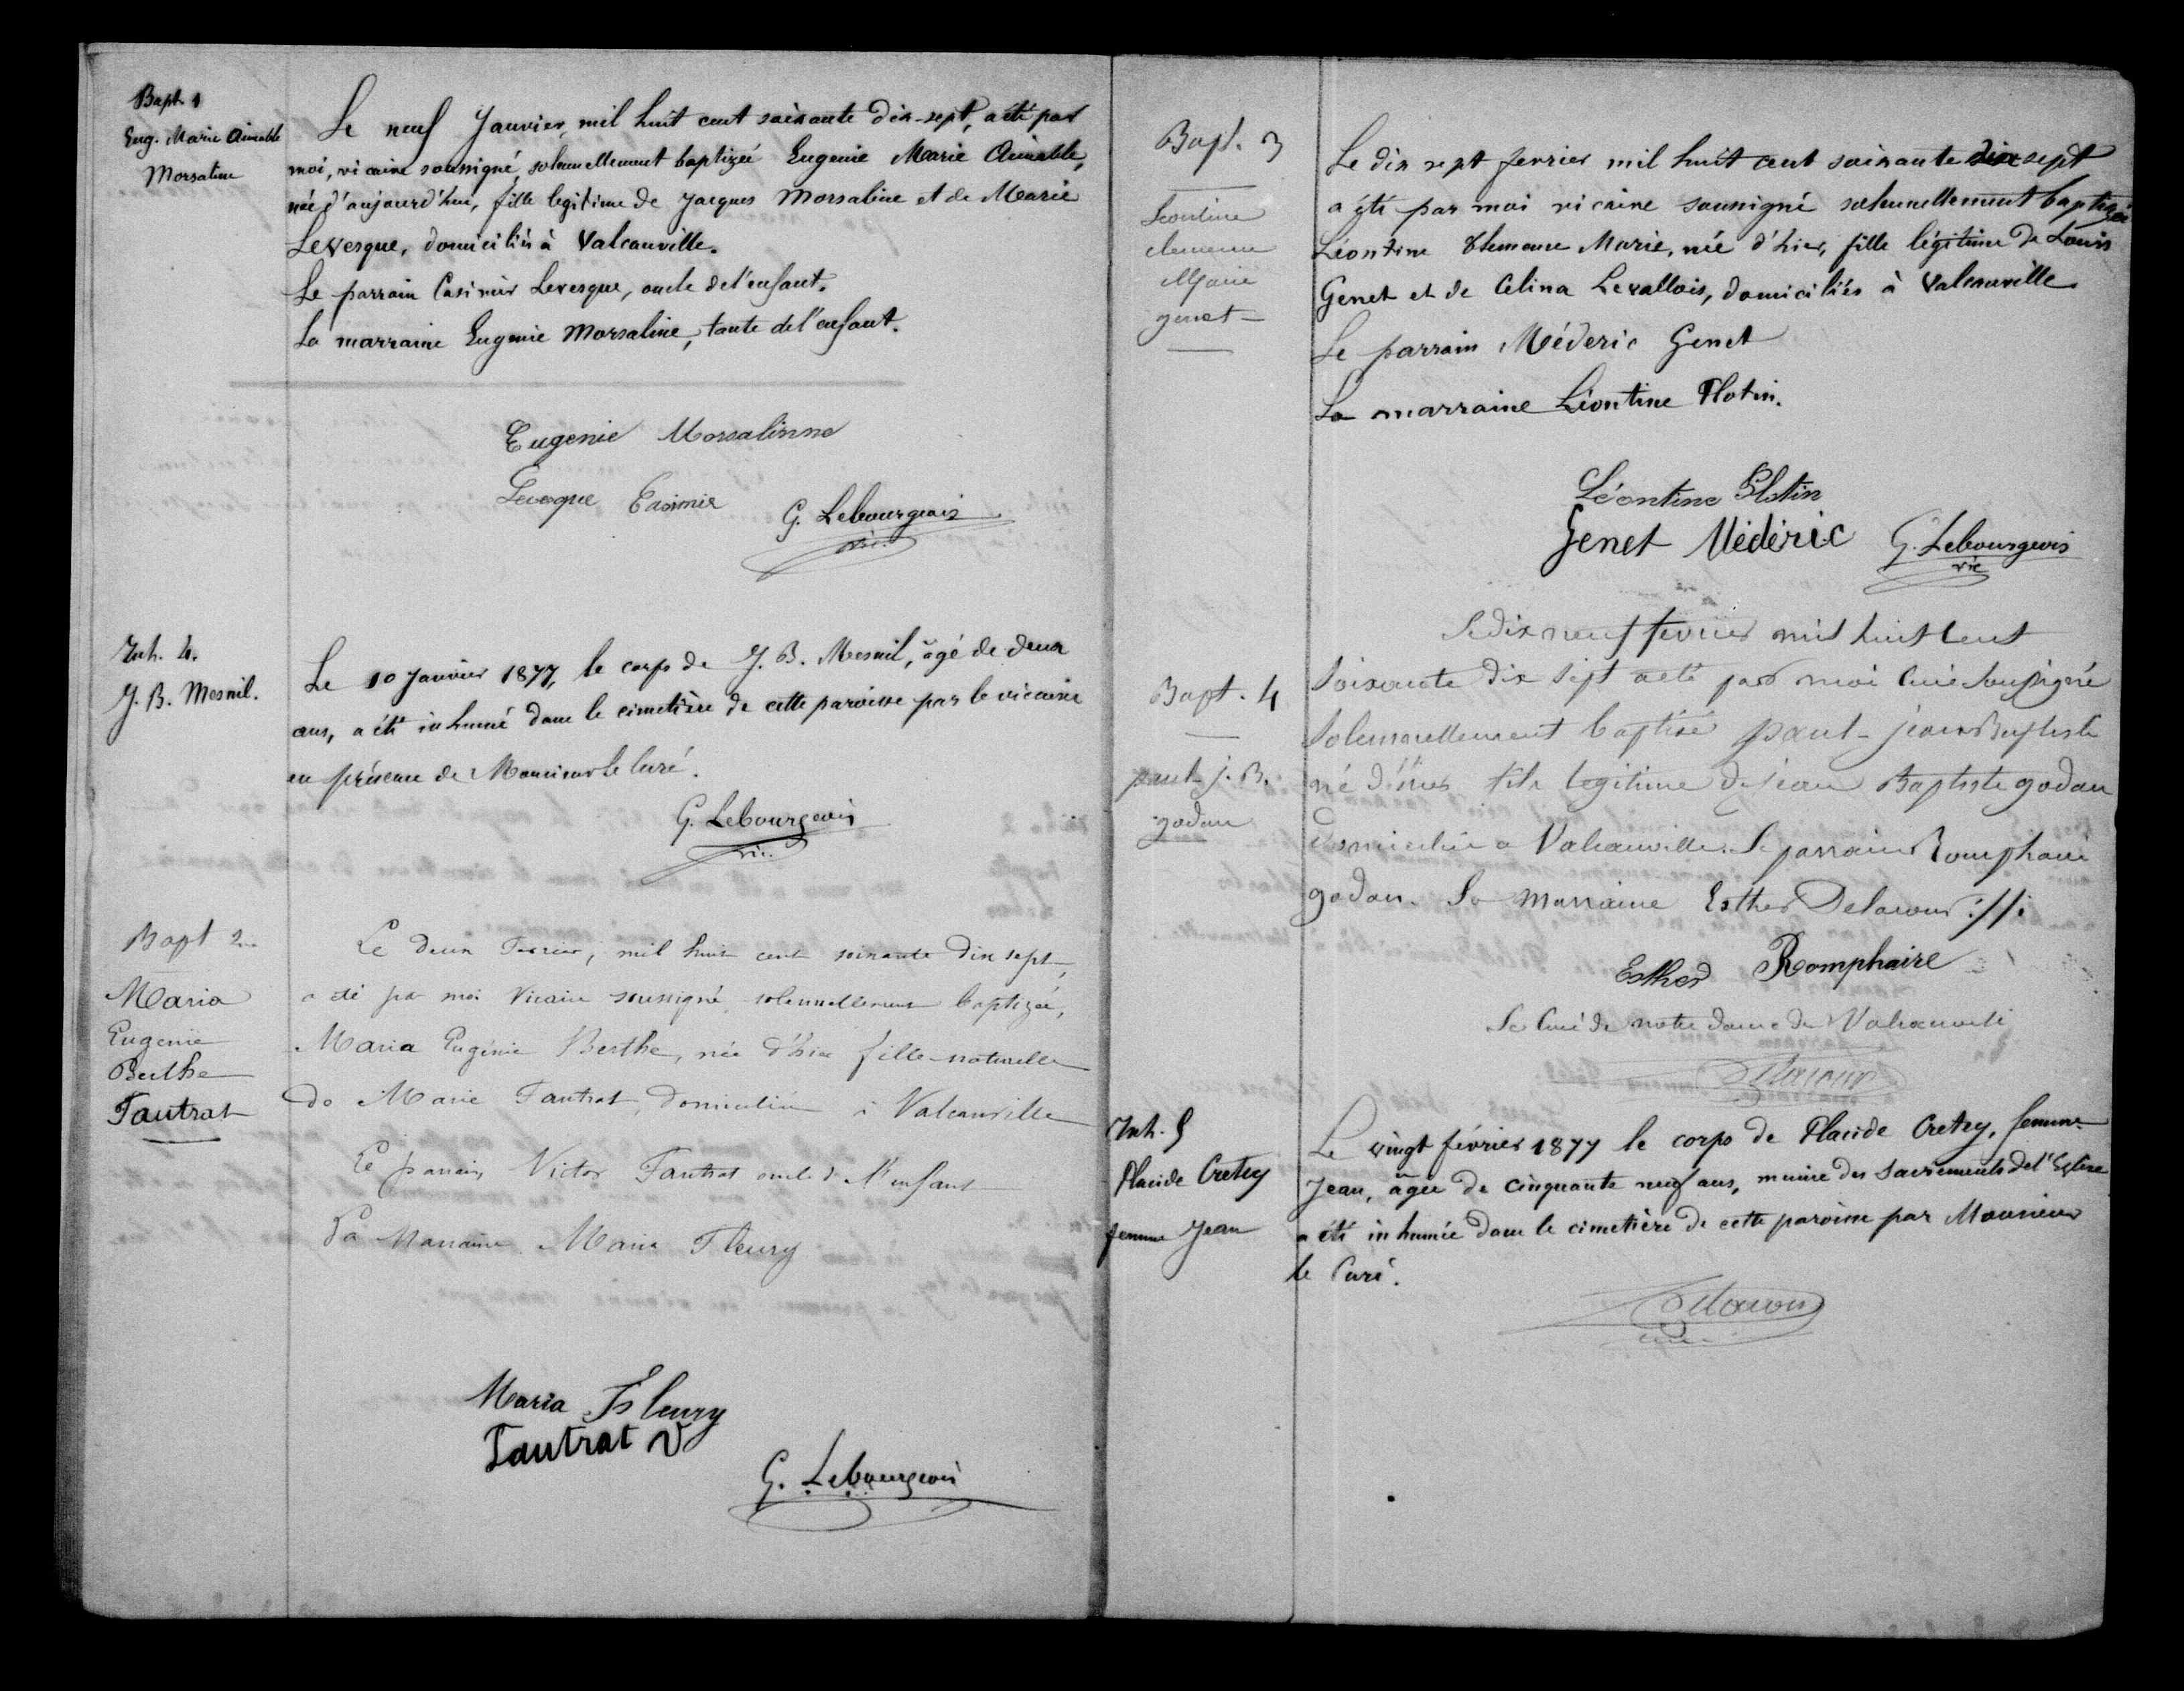 Bapt. 1
Eug. Marie Aimable
Morsaline
Le neuf Janvier, mil huit cent soixante dix-sept, a été par
moi, vicaire soussigné, solennellement baptizée Eugenie Marie Aimable,
née d'aujourd'hui, fille legitime de Jacques Morsaline et de Marie
Levesque, domiciliés à Valcanville.
Le parrain Casimir Levesque, oncle de l'enfant.
La marraine Eugenie Morsaline, tante de l'enfant.
Eugenie Morsalinne
Levesque Casimir
G. Lebourgeois
vic.
Inh. 4.
J. B. Mesnil.
Le 10 Janvier 1877, le corps de J. B. Mesnil, âgé de deux
ans, a été inhumé dans le cimetière de cette paroisse par le vicaire
en présence de Monsieur le Curé.
G. Lebourgeois
vic.
Bapt 2
Maria
Eugenie
Berthe
Tautrat
Le deux Fevrier, mil huit cent soixante dix sept,
a été par moi Vicaire soussigné solennellement baptizée,
Maria Eugénie Berthe, née d'hier fille naturelle
de Marie Tautrat, domiciliée à Valcanville
Le parrain Victor Tautrat oncle de l'enfant
La Marraine Maria Fleury
Maria Fleury
Tautrat V
G. Lebourgeois
Bapt. 3
Leontine
clemence
Marie
genet
Le dix sept fevrier mil huit cent soixante dix sept
a été par moi vicaire soussigné solennellement baptizée
Léontine Clemence Marie, née d'hier, fille légitime de Louis
Genet et de Celina Levallois, domiciliés à Valcanville
Le parrain Méderic Genet
La marraine Léontine Flotin.
Léontine Flotin
Genet Médéric
G. Lebourgeois
vic
Bapt. 4
paul j. B.
godan
Le dix neuf fevrier mil huit cent
soixante dix sept a été par moi Curé soussigné
solennellement baptisé paul jean Baptiste
né d'hier fils legitime de jean Baptiste godan
domicilié a Valcanville. Le parrain Romphaire
godan. La marraine Esther Delacour
Esther Romphaire
Le Curé de notre dame de Valcanville
Delacour
Inh. 5
Placide Cretey
femme Jean
Le vingt février 1877 le corps de Placide Cretey, femme
Jean, âgée de cinquante neuf ans, munie des Sacrements de l'Eglise
a été inhumée dans le cimetière de cette paroisse par Monsieur
le Curé.
Delacour